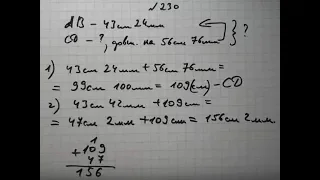 № 230
АВ – 43см 24мм
CD – ?, довш. на 56см 76мм
?
1) 43см 24мм + 56см 76мм =
= 99см 100мм = 109(см) – CD
2) 43см 42мм + 109см =
= 47см 2мм + 109см = 156см 2мм.
1
+ 109
47
156